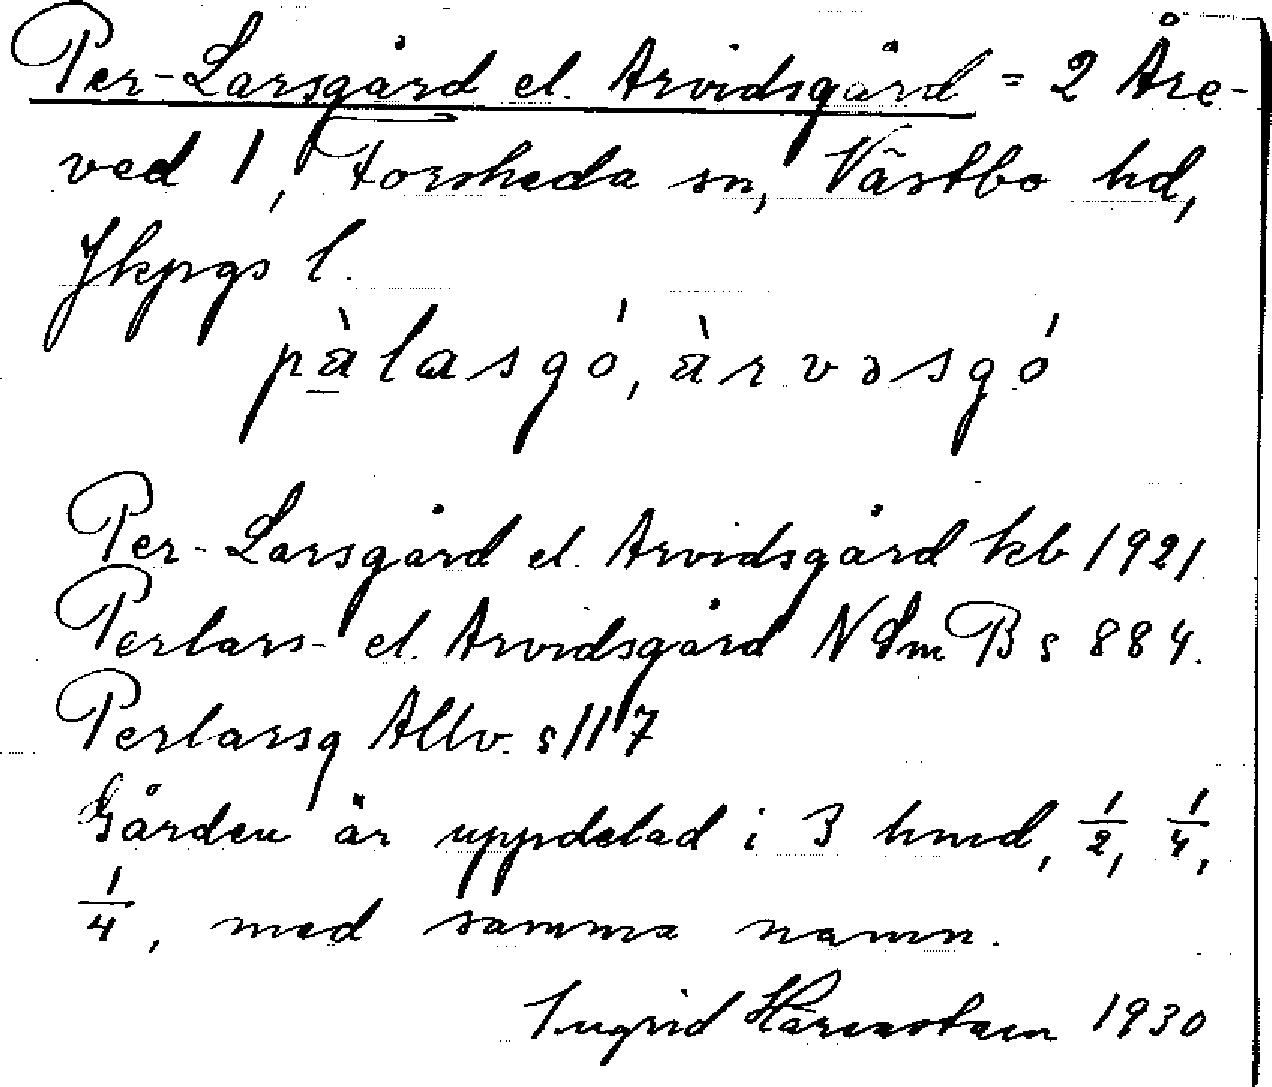 Per-Larsgård el. Arvidsgård = 2 Åre-
ved 1, Forsheda sn, Västbo hd,
Jkpgs l.
pàlasgó, àrvəsgó
Per-Larsgård el. Arvidsgård kb 1921
Perlars- el. Arvidsgård N Sm B s 884.
Perlarsg Allv. s 117
Gården är uppdelad i 3 hmd, 1/2, 1/4,
1/4, med samma namn.
Ingrid Härenstam 1930